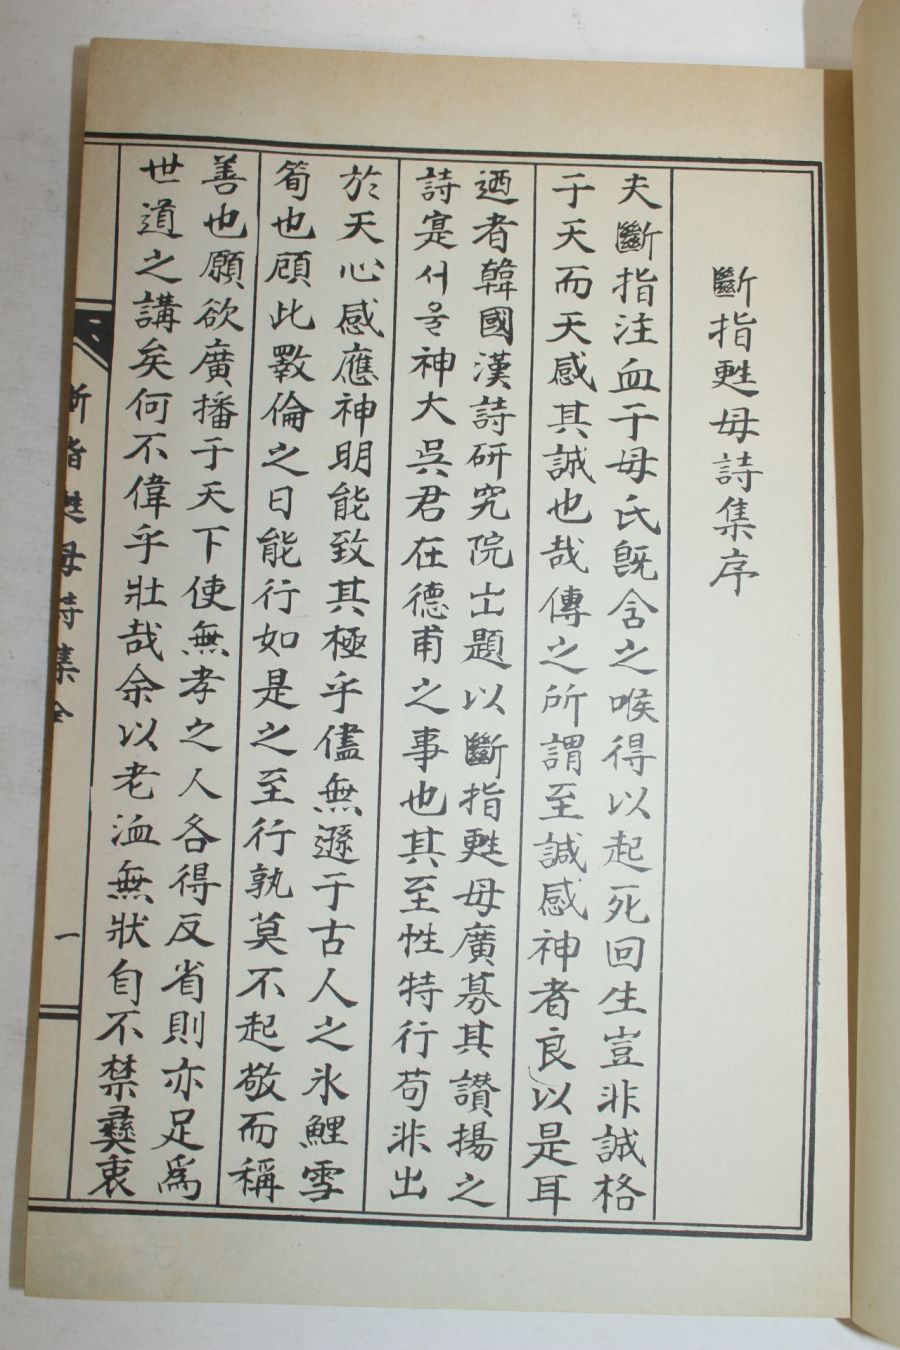 斷指甦母詩集序
夫斷指注血于母氏旣含之喉得以起死回生豈非誠格
于天而天感其誠也哉傳之所謂至諴感神者良以是耳
迺者韓國漢詩研究院出題以斷指甦母廣募其讃揚之
詩寔서울神大吳君在德甫之事也其至性特行苟非出
於天心感應神明能致其極乎儘無遜于古人之氷鯉雪
筍也頋此斁倫之日能行如是之至行孰莫不起敬而稱
善也願欲廣播于天下使無孝之人各得反省則亦足爲
世道之講矣何不偉乎壯哉余以老洫無狀自不禁彛衷
斷指甦母詩集全
一